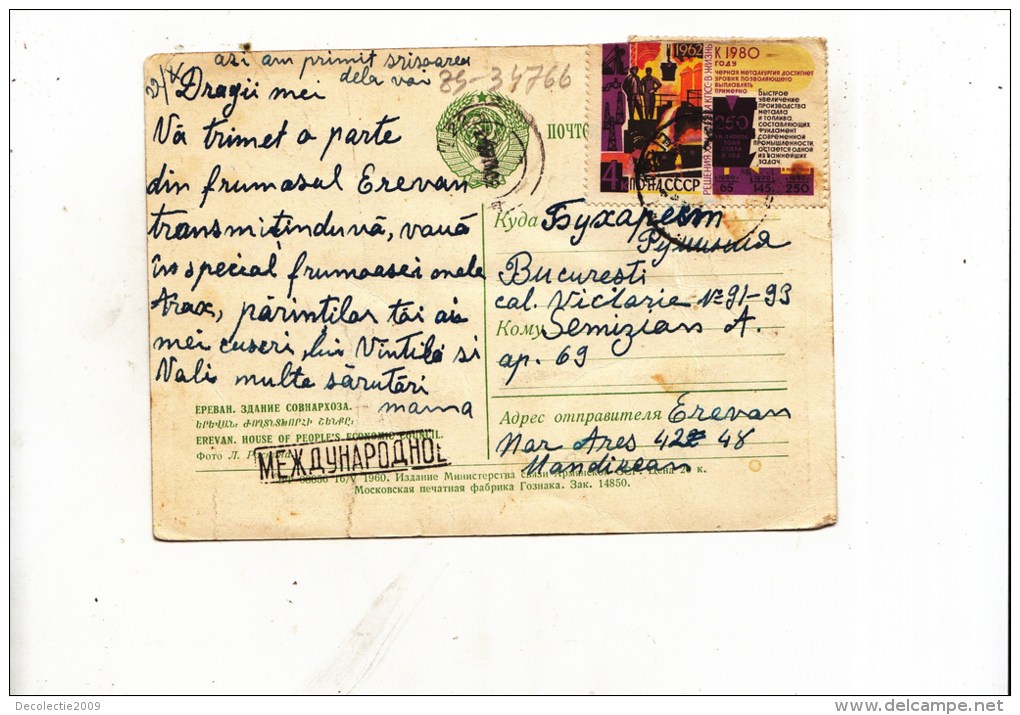 azi am primit scrisoarea
dela voi
85-34766
2/X Dragii mei
Vă trimet o parte
din frumosul Erevan
transmițînduvă, vouă
în special frumoasei mele
Arax, părinților tăi ai
mei cuscri, lui Vintilă si
Vali multe sărutări
mama
ЕРЕВАН. ЗДАНИЕ СОВНАРХОЗА.
ԵՐԵՎԱՆ. ԺՈՂՏՆՏԽՈՐՀԻ ՇԵՆՔԸ:
EREVAN. HOUSE OF PEOPLE'S ECONOMIC COUNCIL.
Фото Л.
МЕЖДУНАРОДНОЕ
16/V 1960. Издание Министерства связи Армянской ССР. Цена к.
Московская печатная фабрика Гознака. Зак. 14850.
ПОЧТО
1962
4К ПОЧТА СССР
РЕШЕНИЯ КПСС В ЖИЗНЬ
К 1980
ГОДУ
ЧЕРНАЯ МЕТАЛЛУРГИЯ ДОСТИГНЕТ
УРОВНЯ ПОЗВОЛЯЮЩЕГО
ВЫПЛАВЛЯТЬ
ПРИМЕРНО
250
БЫСТРОЕ
УВЕЛИЧЕНИЕ
ПРОИЗВОДСТВА
МЕТАЛЛА
И ТОПЛИВА,
СОСТАВЛЯЮЩИХ
ФУНДАМЕНТ
СОВРЕМЕННОЙ
ПРОМЫШЛЕННОСТИ,
ОСТАЕТСЯ ОДНОЙ
ИЗ ВАЖНЕЙШИХ
ЗАДАЧ
65 145 250
Куда Бухарест
Румыния
Bucuresti
cal. Victoriei № 91-93
Кому Semizian A.
ap. 69
Адрес отправителя Erevan
Nar Ares 42 48
Mandizean
Decolectie2009
delcampe.net